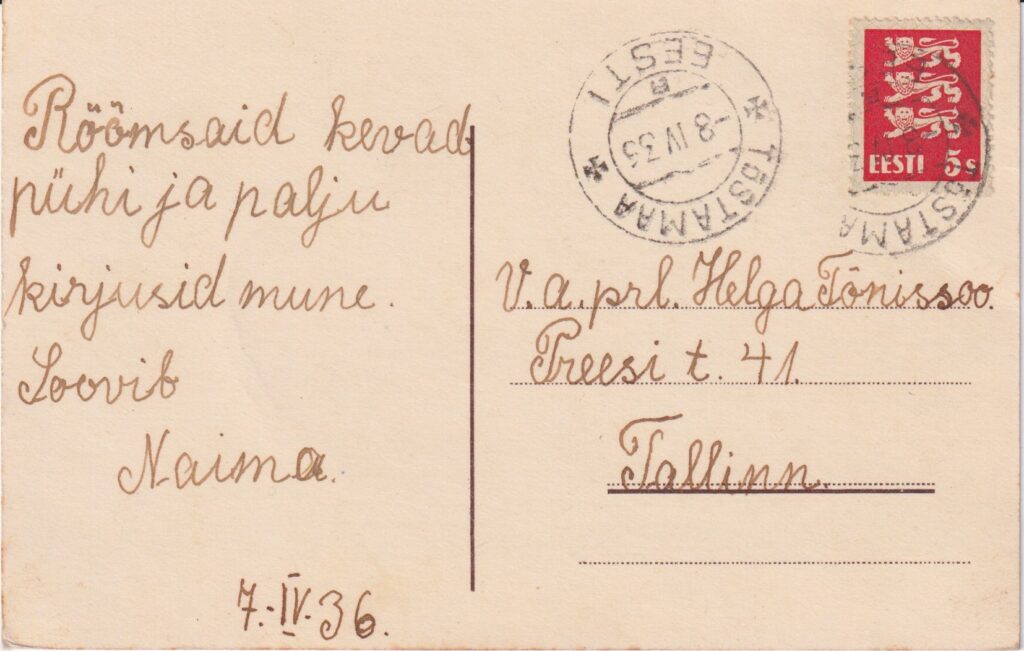 Rõõmsaid kevad
pühi ja palju
kirjusid mune.
Soovib
Naima.
7.-IV-36.
TÕSTAMAA
EESTI
-8 IV 36
EESTI 5 s
TÕSTAMAA
V. a. prl. Helga Tõnissoo.
Preesi t. 41.
Tallinn.